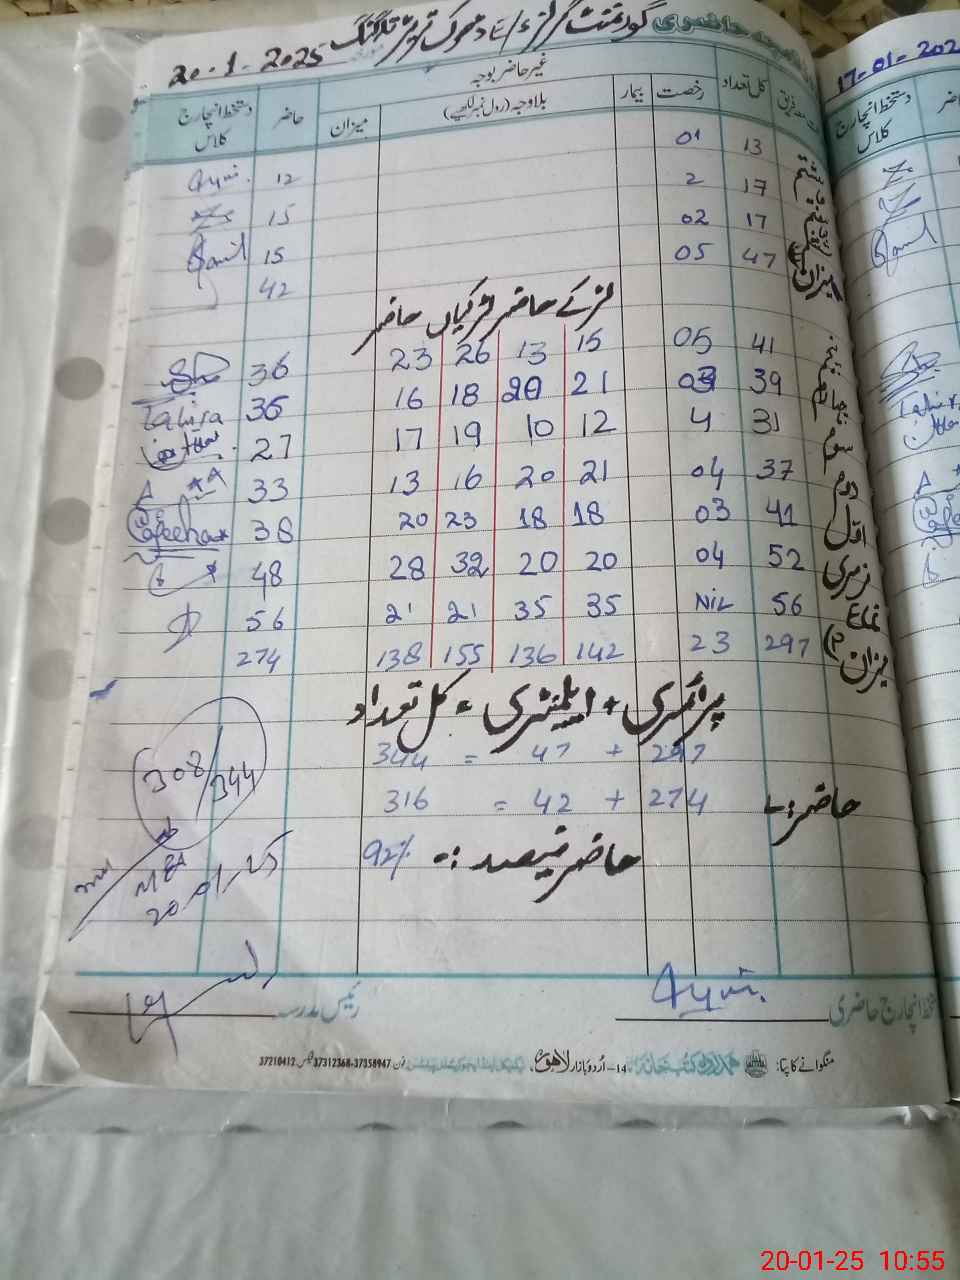 گورنمنٹ گرلز E/S ڈھوک تلہ گنگ 20-1-2025
کل تعداد رخصت بیمار غیر حاضر بوجہ حاضر دستخط انچارج کلاس
بلاوجہ (رول نمبر لکھیے) میزان
13 01 12
ہشتم 17 2 15
ہفتم 17 02 15
میزان 47 05 42
لڑکے حاضر لڑکیاں حاضر
پنجم 41 05 15 13 26 23 36
چہارم 39 03 21 20 18 16 36
سوم 31 4 12 10 19 17 27
دوم 37 04 21 20 16 13 33
اول 41 03 18 18 23 20 38
نرسری 52 04 20 20 32 28 48
56 Nil 35 35 21 21 56
میزان 297 23 142 136 155 138 274
پرائمری + ایلمنٹری = کل تعداد
297 + 47 = 344
حاضر :- 274 + 42 = 316
حاضر فیصد :- 92%
308/344
20.01.25
دستخط انچارج حاضری
رئیس مدرسہ
منگوانے کا پتا: ہمدرد کتب خانہ 14-اُردو بازار لاہور، فون 37358947-37312368 فیکس 37210412
17-01-202
دستخط انچارج کلاس
20-01-25 10:55